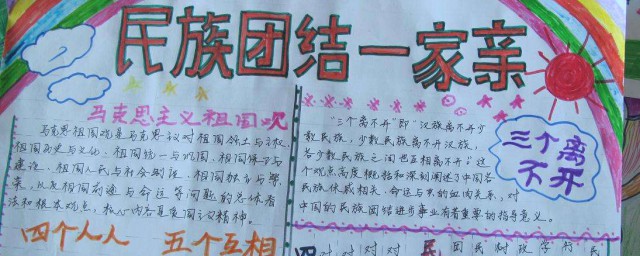 民族团结一家亲
马克思主义祖国观
马克思祖国观是马克思主义对祖国领土与主权、
祖国历史与文化、祖国统一与巩固、祖国保卫与
建设、祖国人民与社会制度、祖国独立与尊
严、以及祖国前途与命运等问题的总体看
法和根本观点,核心内容是爱国主义精神。
四个人人 五个互相
"三个离不开"即"汉族离不开少
数民族,少数民族离不开汉族,
各少数民族之间也互相离不开",这
个观点高度概括和深刻阐述了中国各
民族休戚相关、命运与共的血肉关系,对
中国的民族团结进步事业有着重要的指导意义。
三个离
不开